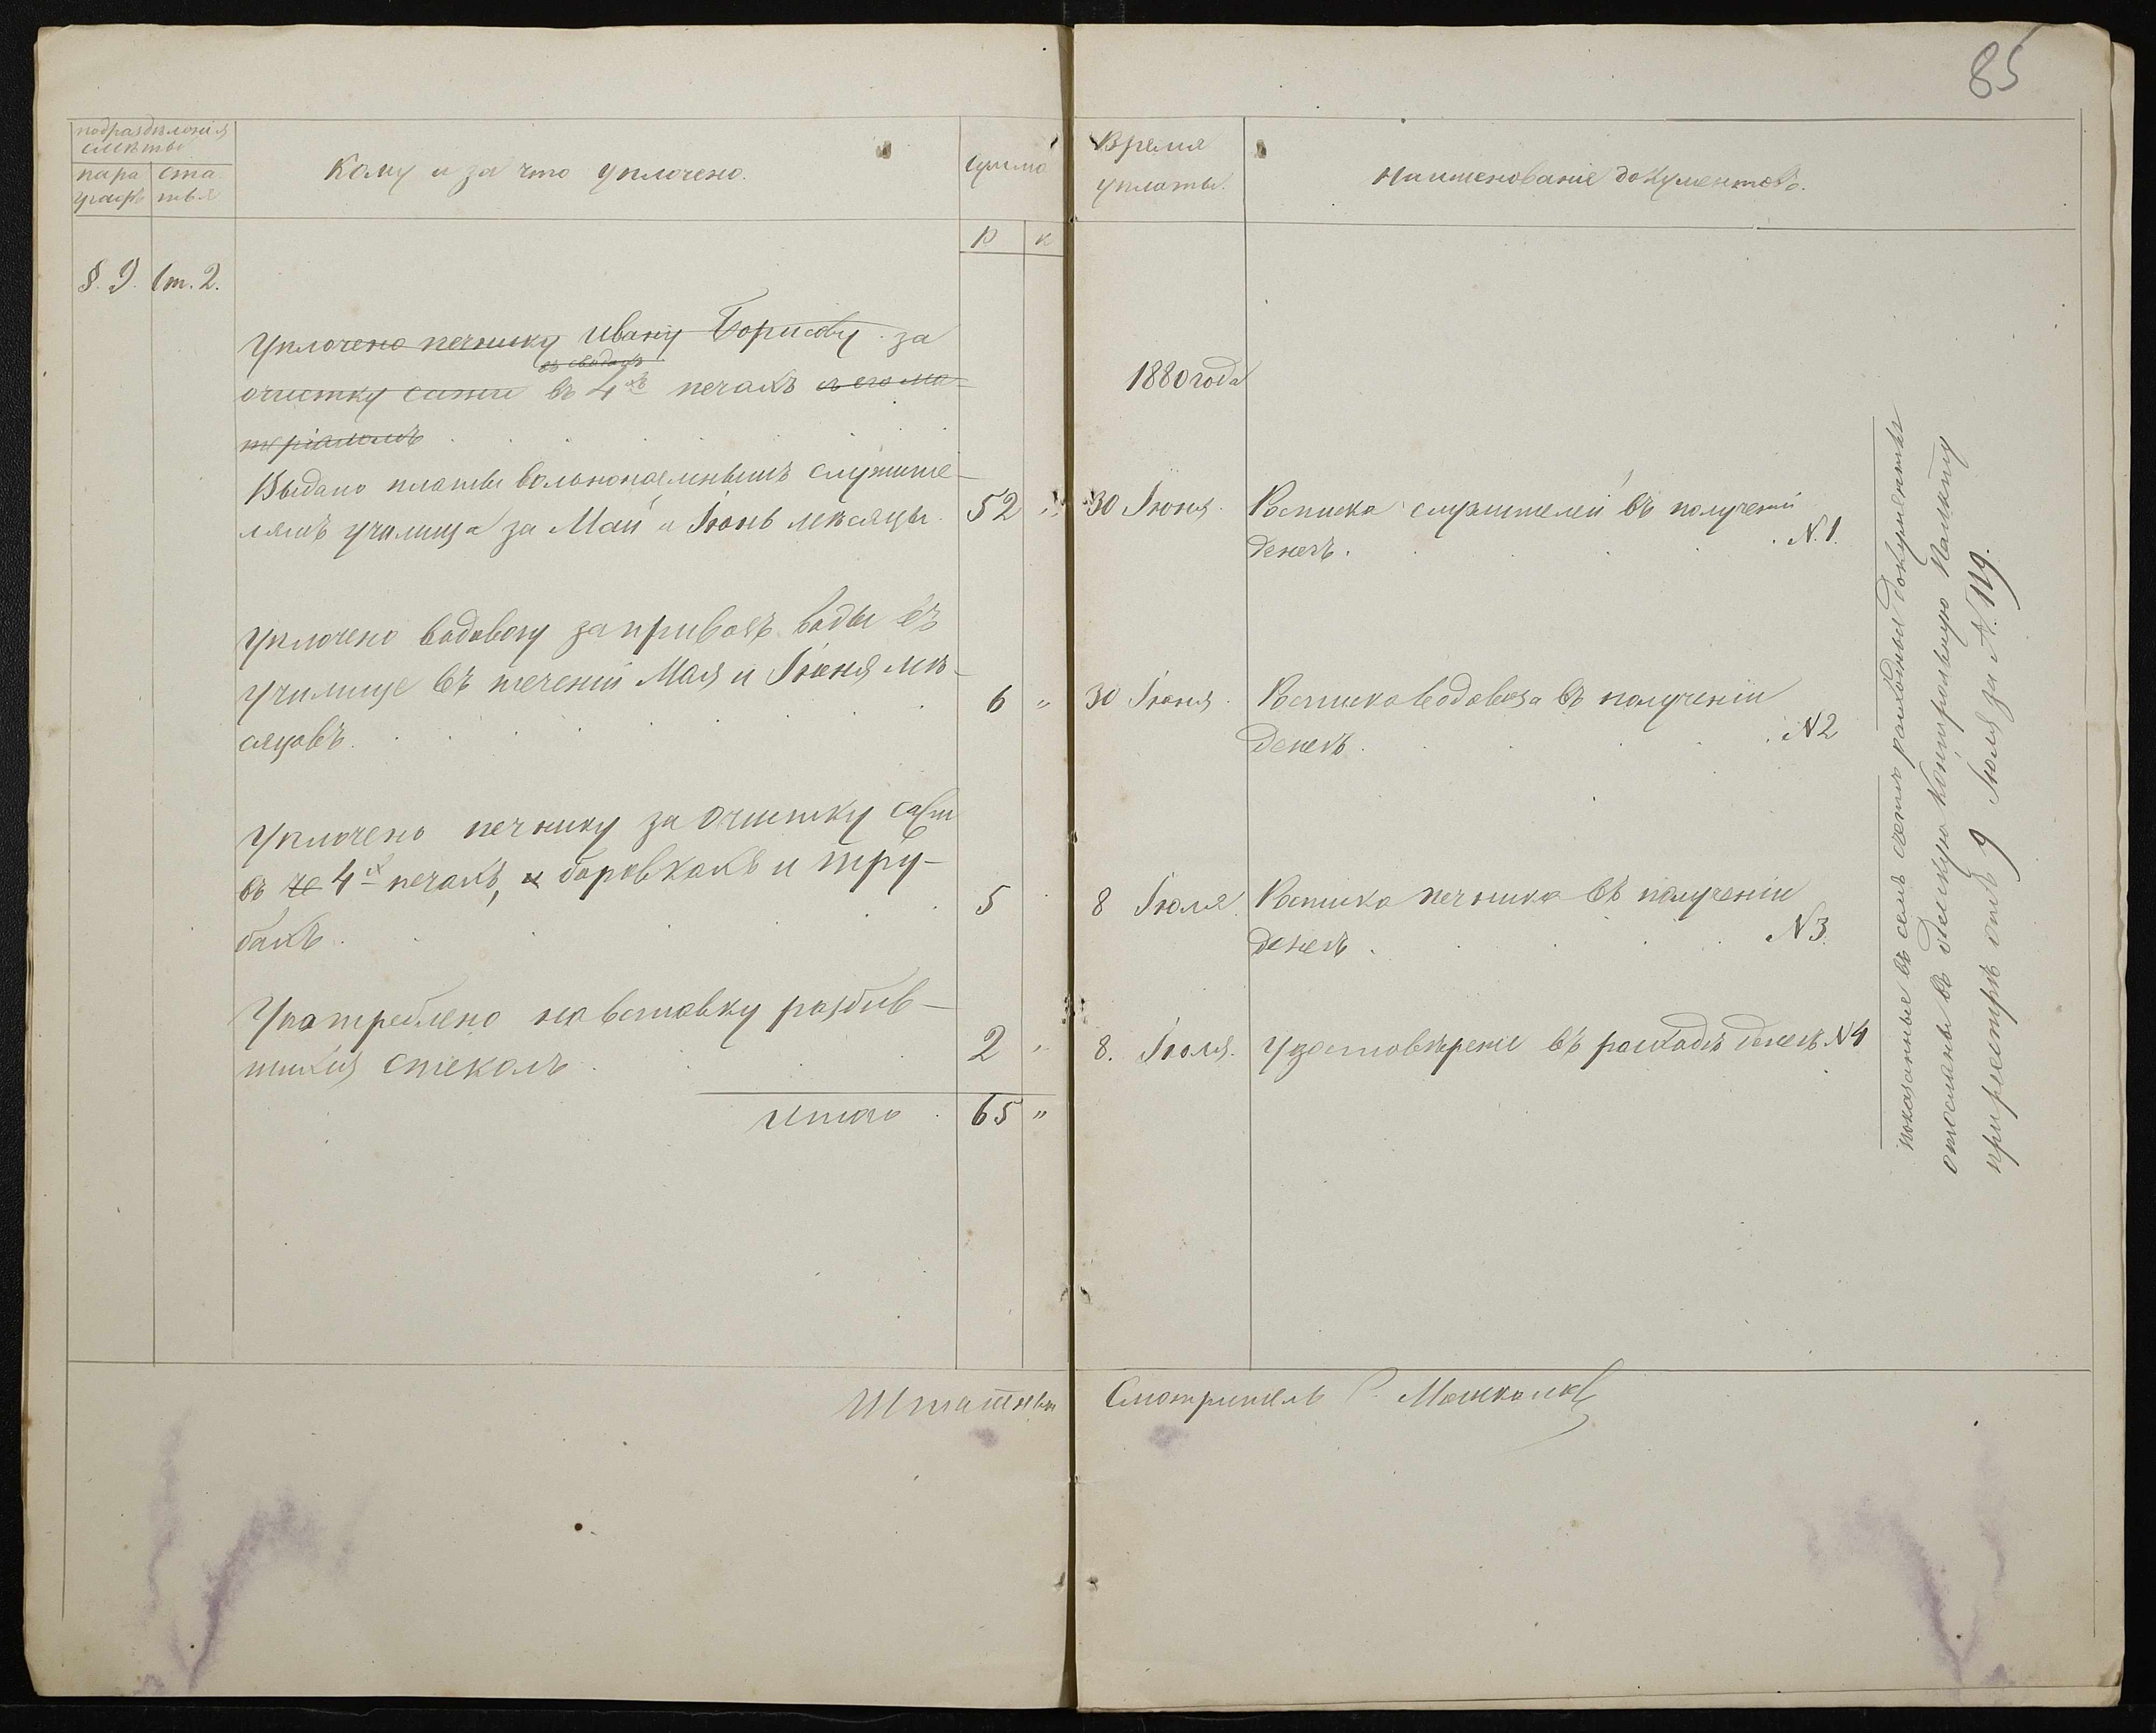 85
подраздѣленія
смѣты
пара
графъ
ста
тья
Кому и за что уплочено.
Сумма
Р
К
Время
уплаты.
Наименованіе документовъ.
§. 9. Ст. 2.
Уплочено печнику Ивану Борисову за
въ сводахъ
очистку сажи въ 4хъ печахъ съ его ма-
теріаломъ
1880 года
Выдано платы вольнонаемнымъ служите-
лямъ училища за Май и Іюнь мѣсяцы.
52 "
30 Іюня.
Росписка служителей въ полученіи
денегъ. N. 1.
Уплочено водовозу за привозъ воды въ
училище въ теченіи Мая и Іюня мѣ-
сяцовъ.
6 "
30 Іюня.
Росписка водовоза въ полученіи
денегъ. N 2
Уплочено печнику за очистку сажи
въ че 4х печахъ, и боровкахъ и тру-
бахъ.
5
8 Іюля.
Росписка печника въ полученіи
денегъ. N 3.
Употреблено на вставку разбив-
шихся стеколъ.
2 "
8. Іюля.
Удостовѣреніе въ расходѣ денегъ N 4
Итого 65 "
Показанные въ семъ счетѣ расходные документы
отосланы въ Одесскую Контрольную Палату
при реэстрѣ отъ 9 Іюля за N. 119.
Штатный Смотритель Машкалов